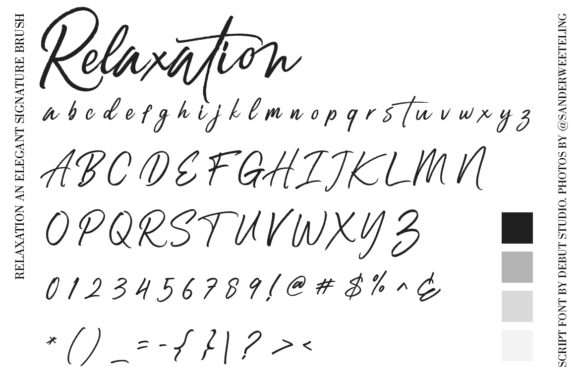 RELAXATION AN ELEGANT SIGNATURE BRUSH
Relaxation
a b c d e f g h i j k l m n o p q r s t u v w x y z
A B C D E F G H I J K L M N
O P Q R S T U V W X Y Z
0 1 2 3 4 5 6 7 8 9 ! @ # $ % ^ &
* ( ) _ = - { } | ? > <
SCRIPT FONT BY DEBUT STUDIO. PHOTOS BY @SANDERWEETELING